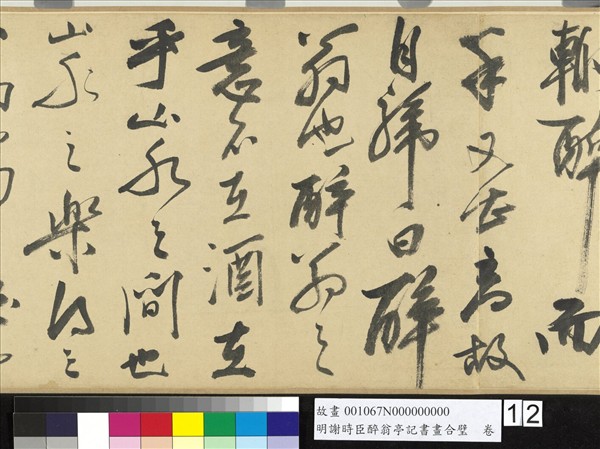 輒醉而
年又最高故
自號曰醉
翁也醉翁之
意不在酒在
乎山水之間也
山水之樂得之
故畫 001067N000000000
明謝時臣醉翁亭記書畫合璧 卷
12